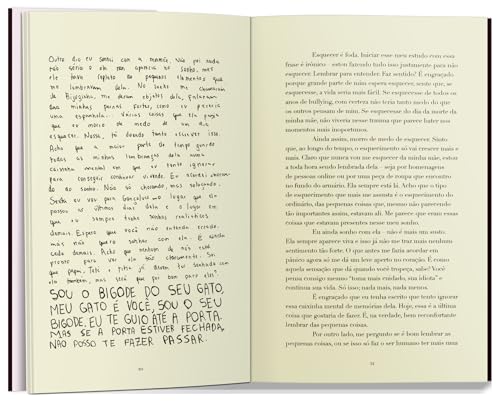 Outro dia eu sonhei com a mamãe. Não foi nada
não sério o
ele tava repleto de pequenos elementos que
me lembravam dela. No sonho me chamaram
de Bigoginha, me deram objetos dela, falaram
das minhas pernas fortes, como eu parecia
uma espanhola. Várias coisas que eu
que eu morro de medo de um dia
esquecer. Nossa, tô doendo tanto escrever isso.
Acho que a maior parte do tempo guardo
todas as minhas lembranças dela numa
caixinha mental em que eu tento ignorar
para conseguir continuar vivendo. Eu acordei chorando
do sonho. Não só chorando, mas soluçando.
Sexta eu vou para Gonçalves - o lugar que ela
passou os últimos dias dela e o lugar em
que eu sempre tenho sonhos realísticos
demais. Espero que você não me entenda errado,
mas não quero sonhar com ela. É ainda
cedo demais. Acho que nenhum de nós está
pronto para ver ela tão claramente. Sei
que papai, Teté e Pitita já devem ter sonhado com
ela também, mas será que foi bom para eles?
SOU O BIGODE DO SEU GATO,
MEU GATO É VOCÊ, SOU O SEU
BIGODE. EU TE GUIO ATÉ A PORTA.
MAS SE A PORTA ESTIVER FECHADA,
NÃO POSSO TE FAZER PASSAR.
Esquecer é foda. Iniciar esse meu estudo com essa
frase é irônico – estou fazendo tudo isso justamente para não
esquecer. Lembrar para entender. Faz sentido? É engraçado
porque grande parte de mim espera esquecer, sendo que, se
esquecesse, a vida seria mais fácil. Se esquecesse de todos os
anos de bullying, com certeza não teria tanto medo do que
os outros pensam de mim. Se esquecesse do dia da morte da
minha mãe, não viveria nesse trauma que parece haver nos
momentos mais inoportunos.
Ainda assim, morro de medo de esquecer. Sinto
que, ao longo do tempo, o esquecimento só vai crescer mais e
mais. Claro que nunca vou me esquecer da minha mãe, estou
a toda hora sendo lembrada dela - seja por homenagens
de pessoas online ou por uma peça de roupa que encontro
no fundo do armário. Ela sempre está lá. Acho que o tipo
de esquecimento que mais me assusta é o esquecimento do
ordinário, das pequenas coisas que, mesmo não parecendo
tão importantes assim, estavam ali. Me parece que eram essas
coisas que estavam presentes nesse meu sonho.
Eu ainda sonho com ela – não é mais um susto.
Ela sempre aparece viva e isso já não me traz mais nenhum
sentimento tão forte. O que antes me faria acordar em
pânico agora só me dá um leve aperto no coração. É como
aquela sensação que dá quando você tropeça, sabe? Você
pensa consigo mesmo "toma mais cuidado, sua idiota" e
continua sua vida. Só isso; nada mais, nada menos.
É engraçado que eu tenha escrito que tento ignorar
essa caixinha mental de memórias dela. Hoje, essa é a última
coisa que gostaria de fazer. É, na verdade, bem reconfortante
lembrar das pequenas coisas.
Por outro lado, me pergunto se é bom lembrar as
pequenas coisas, ou se isso só faz o ser humano ter mais uma